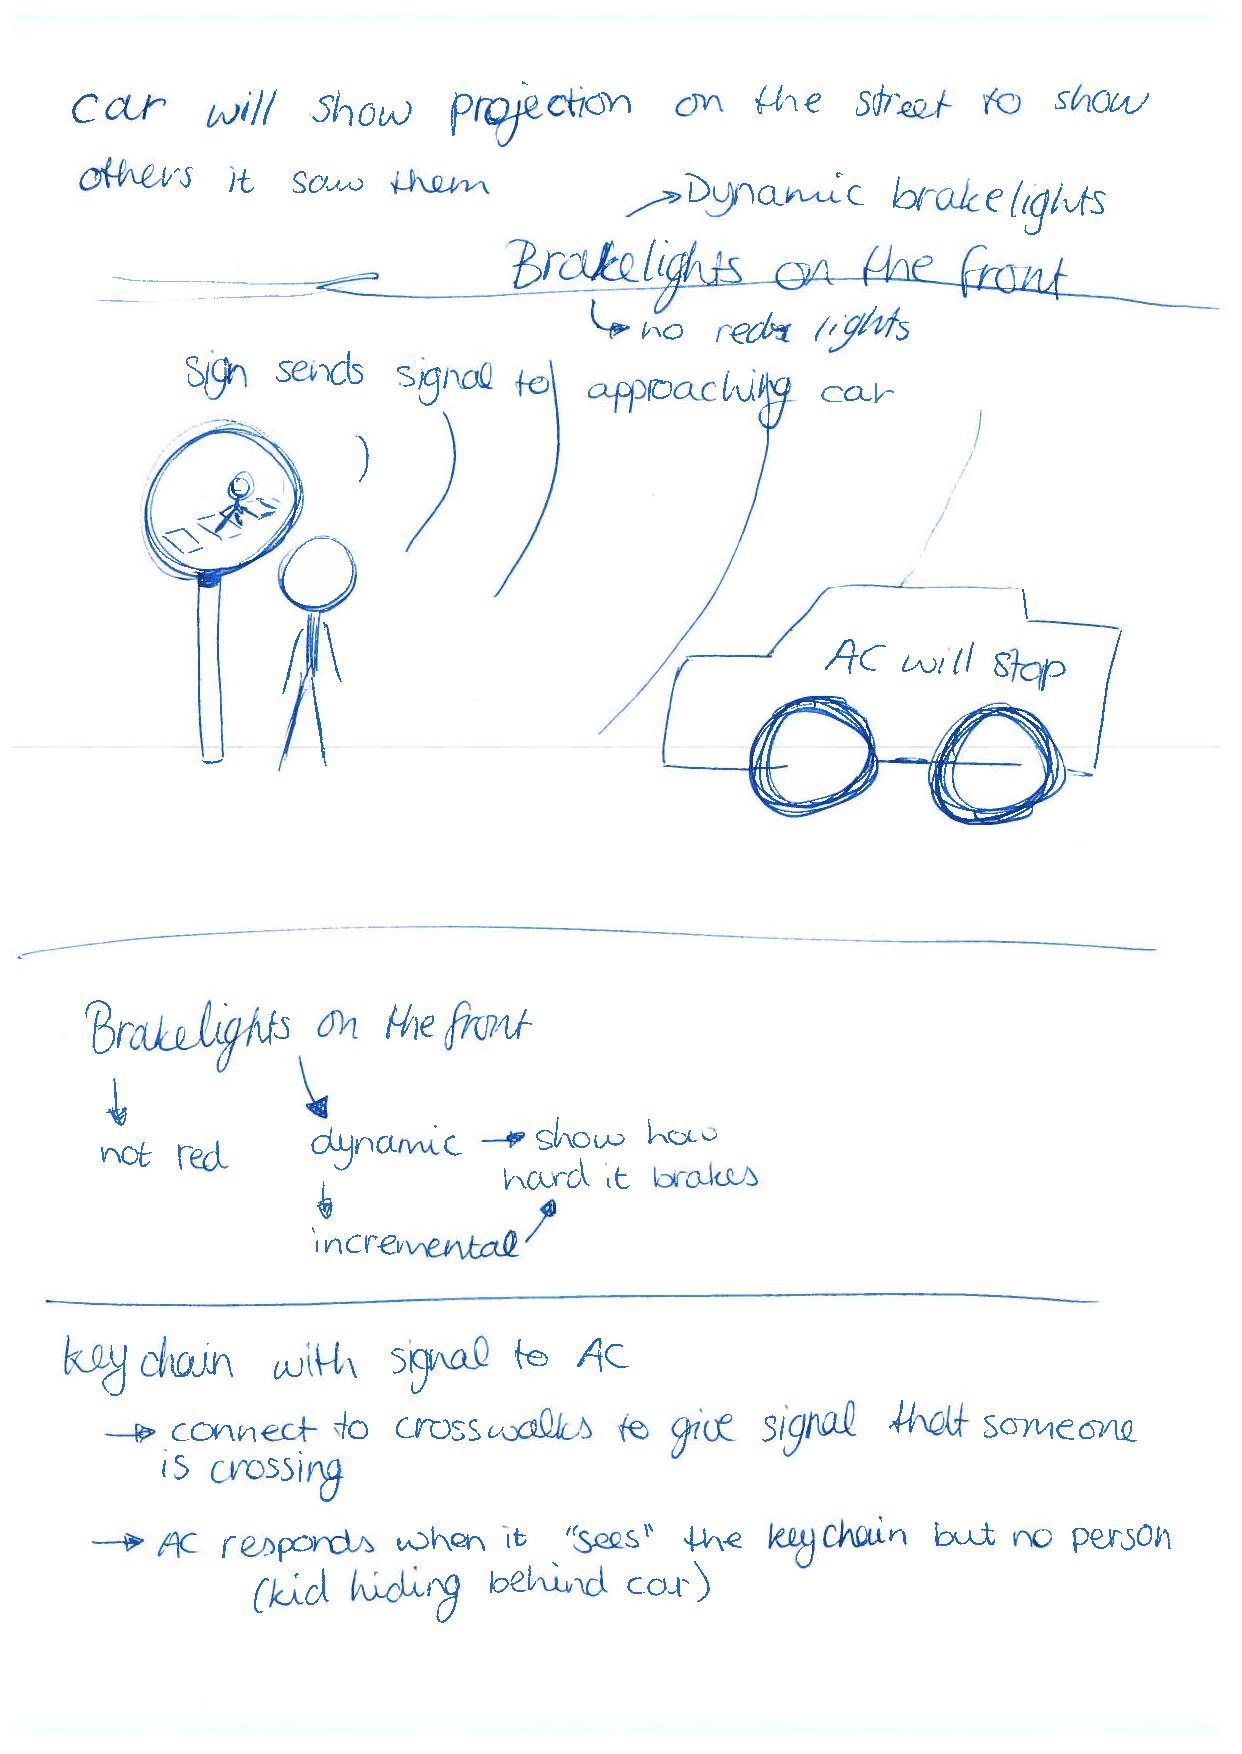 car will show projection on the street to show
others it saw them
Dynamic brakelights
Brakelights on the front
no red lights
Sign sends signal to approaching car
AC will stop
Brakelights on the front
not red
dynamic → show how
hard it brakes
incremental
key chain with signal to AC
→ connect to crosswalks to give signal that someone
is crossing
→ AC responds when it "sees" the keychain but no person
(kid hiding behind car)